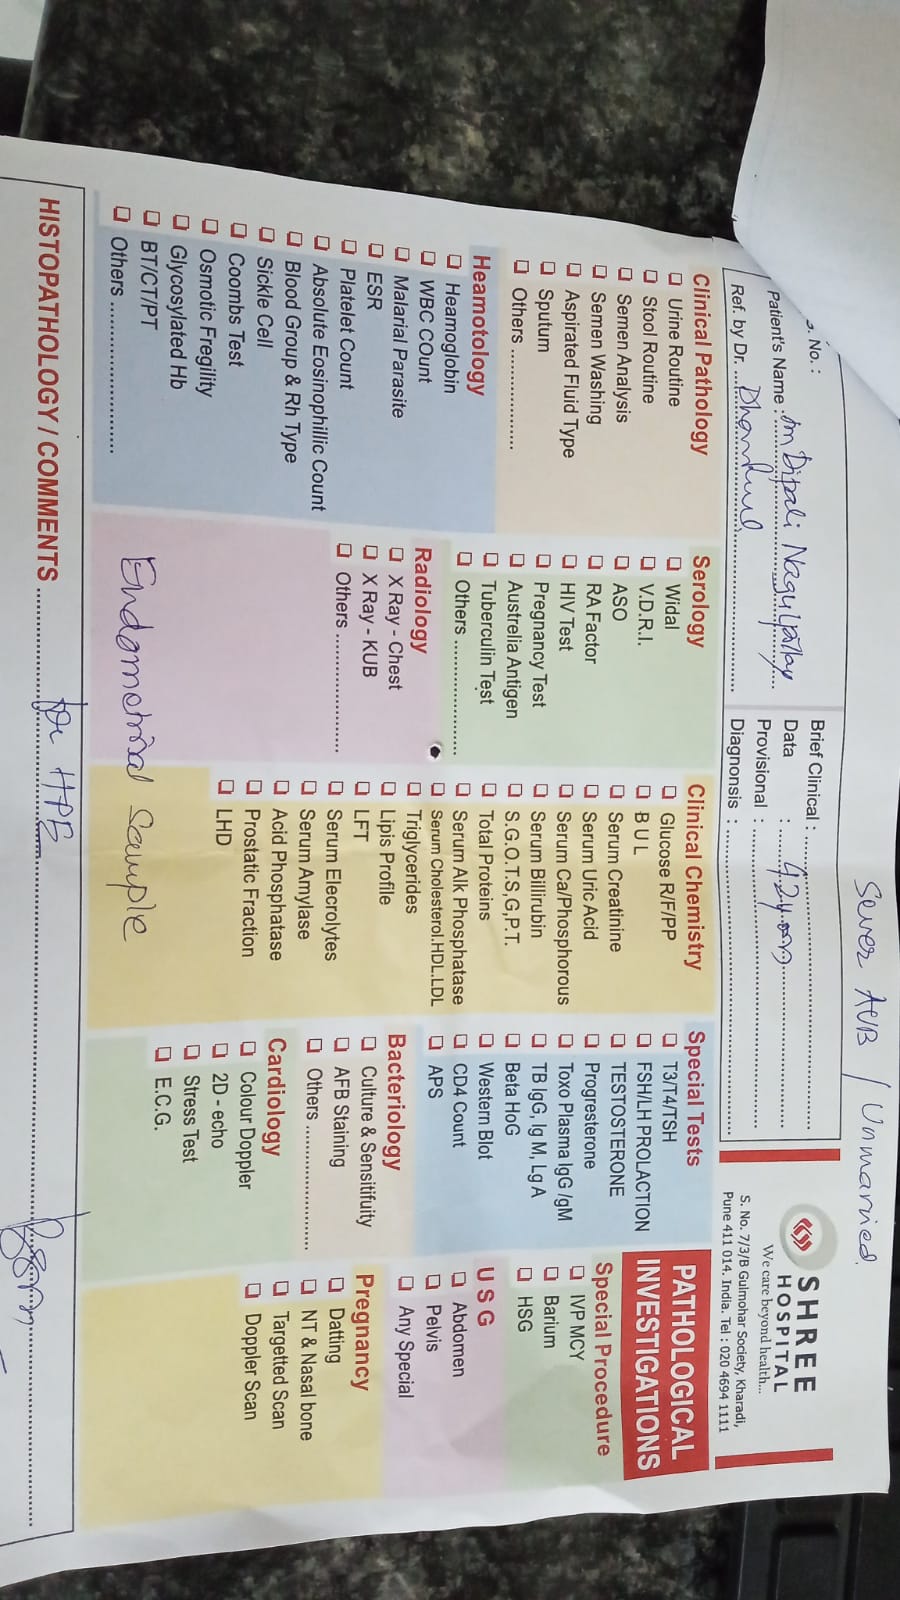 Sever AUB / Unmarried.
SHREE
HOSPITAL
We care beyond health...
S. No. 7/3/B Gulmohar Society, Kharadi,
Pune 411 014. India. Tel : 020 4694 1111
No. :
Patient's Name : Dipali
Ref. by Dr.
Brief Clinical :
Data : 42 years
Provisional :
Diagnonsis :
PATHOLOGICAL
INVESTIGATIONS
Clinical Pathology
Urine Routine
Stool Routine
Semen Analysis
Semen Washing
Aspirated Fluid Type
Sputum
Others
Heamotology
Heamoglobin
WBC COunt
Malarial Parasite
ESR
Platelet Count
Absolute Eosinophillic Count
Blood Group & Rh Type
Sickle Cell
Coombs Test
Osmotic Fregility
Glycosylated Hb
BT/CT/PT
Others
Serology
Widal
V.D.R.I.
ASO
RA Factor
HIV Test
Pregnancy Test
Austrelia Antigen
Tuberculin Test
Others
Radiology
X Ray - Chest
X Ray - KUB
Others
Clinical Chemistry
Glucose R/F/PP
B U L
Serum Creatinine
Serum Uric Acid
Serum Ca/Phosphorous
Serum Billirubin
S.G.O.T.S,G,P.T.
Total Proteins
Serum Alk Phosphatase
Serum Cholesterol.HDL.LDL
Triglycerides
Lipis Profile
LFT
Serum Elecrolytes
Serum Amylase
Acid Phosphatase
Prostatic Fraction
LHD
Special Tests
T3/T4/TSH
FSH/LH PROLACTION
TESTOSTERONE
Progresterone
Toxo Plasma IgG /gM
TB IgG, Ig M, Lg A
Beta HoG
Western Blot
CD4 Count
APS
Bacteriology
Culture & Sensitifuity
AFB Staining
Others
Cardiology
Colour Doppler
2D - echo
Stress Test
E.C.G.
Special Procedure
IVP MCY
Barium
HSG
U S G
Abdomen
Pelvis
Any Special
Pregnancy
Datting
NT & Nasal bone
Targetted Scan
Doppler Scan
Endometrial Sample
HISTOPATHOLOGY / COMMENTS for HPE